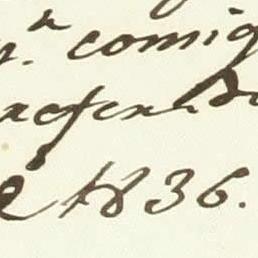 y.n comig
referido
e 1836.